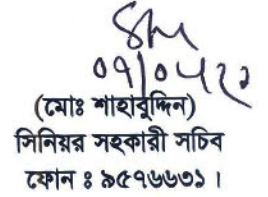 ০৭|০৫২২
(মোঃ শাহাবুদ্দিন)
সিনিয়র সহকারী সচিব
ফোন ঃ ৯৫৭৬৬৩১।